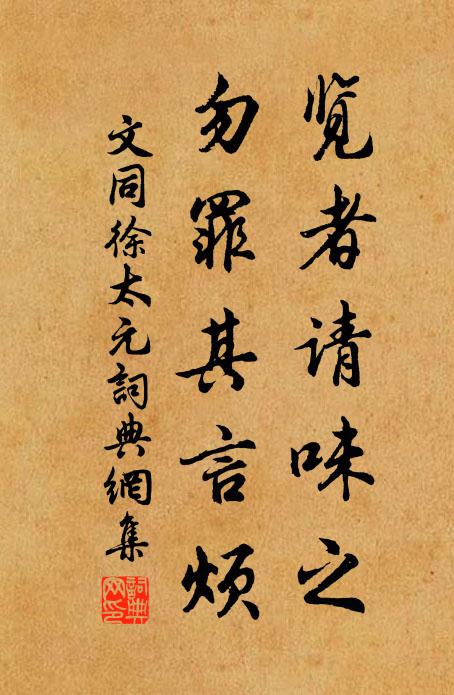 览者请味之
勿罪其言烦
文同徐太元詞典網集
詞典网印